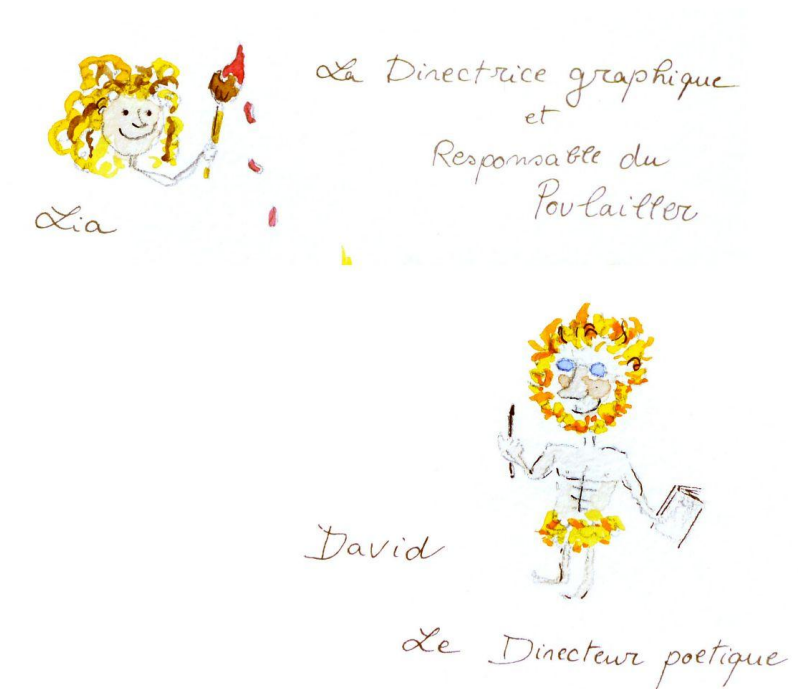 La Directrice graphique
et
Responsable du
Poulailler
Lia
David
Le Directeur poetique